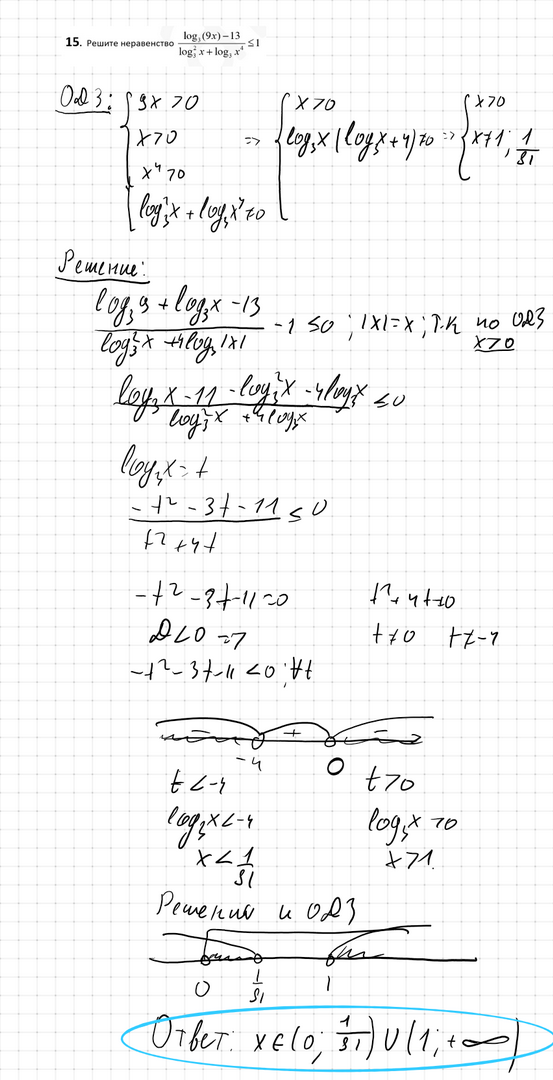 15. Решите неравенство (log₃(9x) − 13)/(log₃² x + log₃ x⁴) ≤ 1
ОДЗ: { 9x > 0 { x > 0 { x > 0
x > 0 => log₃x (log₃x + 4) ≠ 0 => x ≠ 1; 1/81
x⁴ > 0
log₃²x + log₃x⁴ ≠ 0
Решение:
(log₃9 + log₃x − 13)/(log₃²x + 4log₃|x|) − 1 ≤ 0 ; |x| = x ; т.к по ОДЗ
x > 0
(log₃x − 11 − log₃²x − 4log₃x)/(log₃²x + 4log₃x) ≤ 0
log₃x = t
(−t² − 3t − 11)/(t² + 4t) ≤ 0
−t² − 3t − 11 = 0 t² + 4t ≠ 0
D < 0 => t ≠ 0 t ≠ −4
−t² − 3t − 11 < 0 ; ∀t
− + −
−4 0
t < −4 t > 0
log₃x < −4 log₃x > 0
x < 1/81 x > 1.
Решения и ОДЗ
0 1/81 1
Ответ: x ∈ (0; 1/81) ∪ (1; +∞)